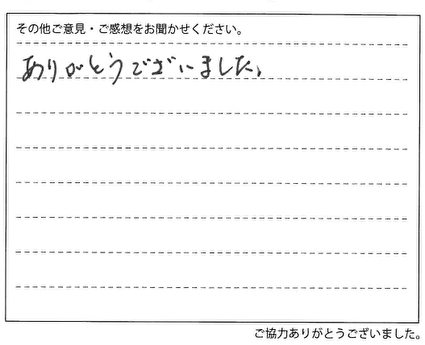 その他ご意見・ご感想をお聞かせください。
ありがとうございました。
ご協力ありがとうございました。